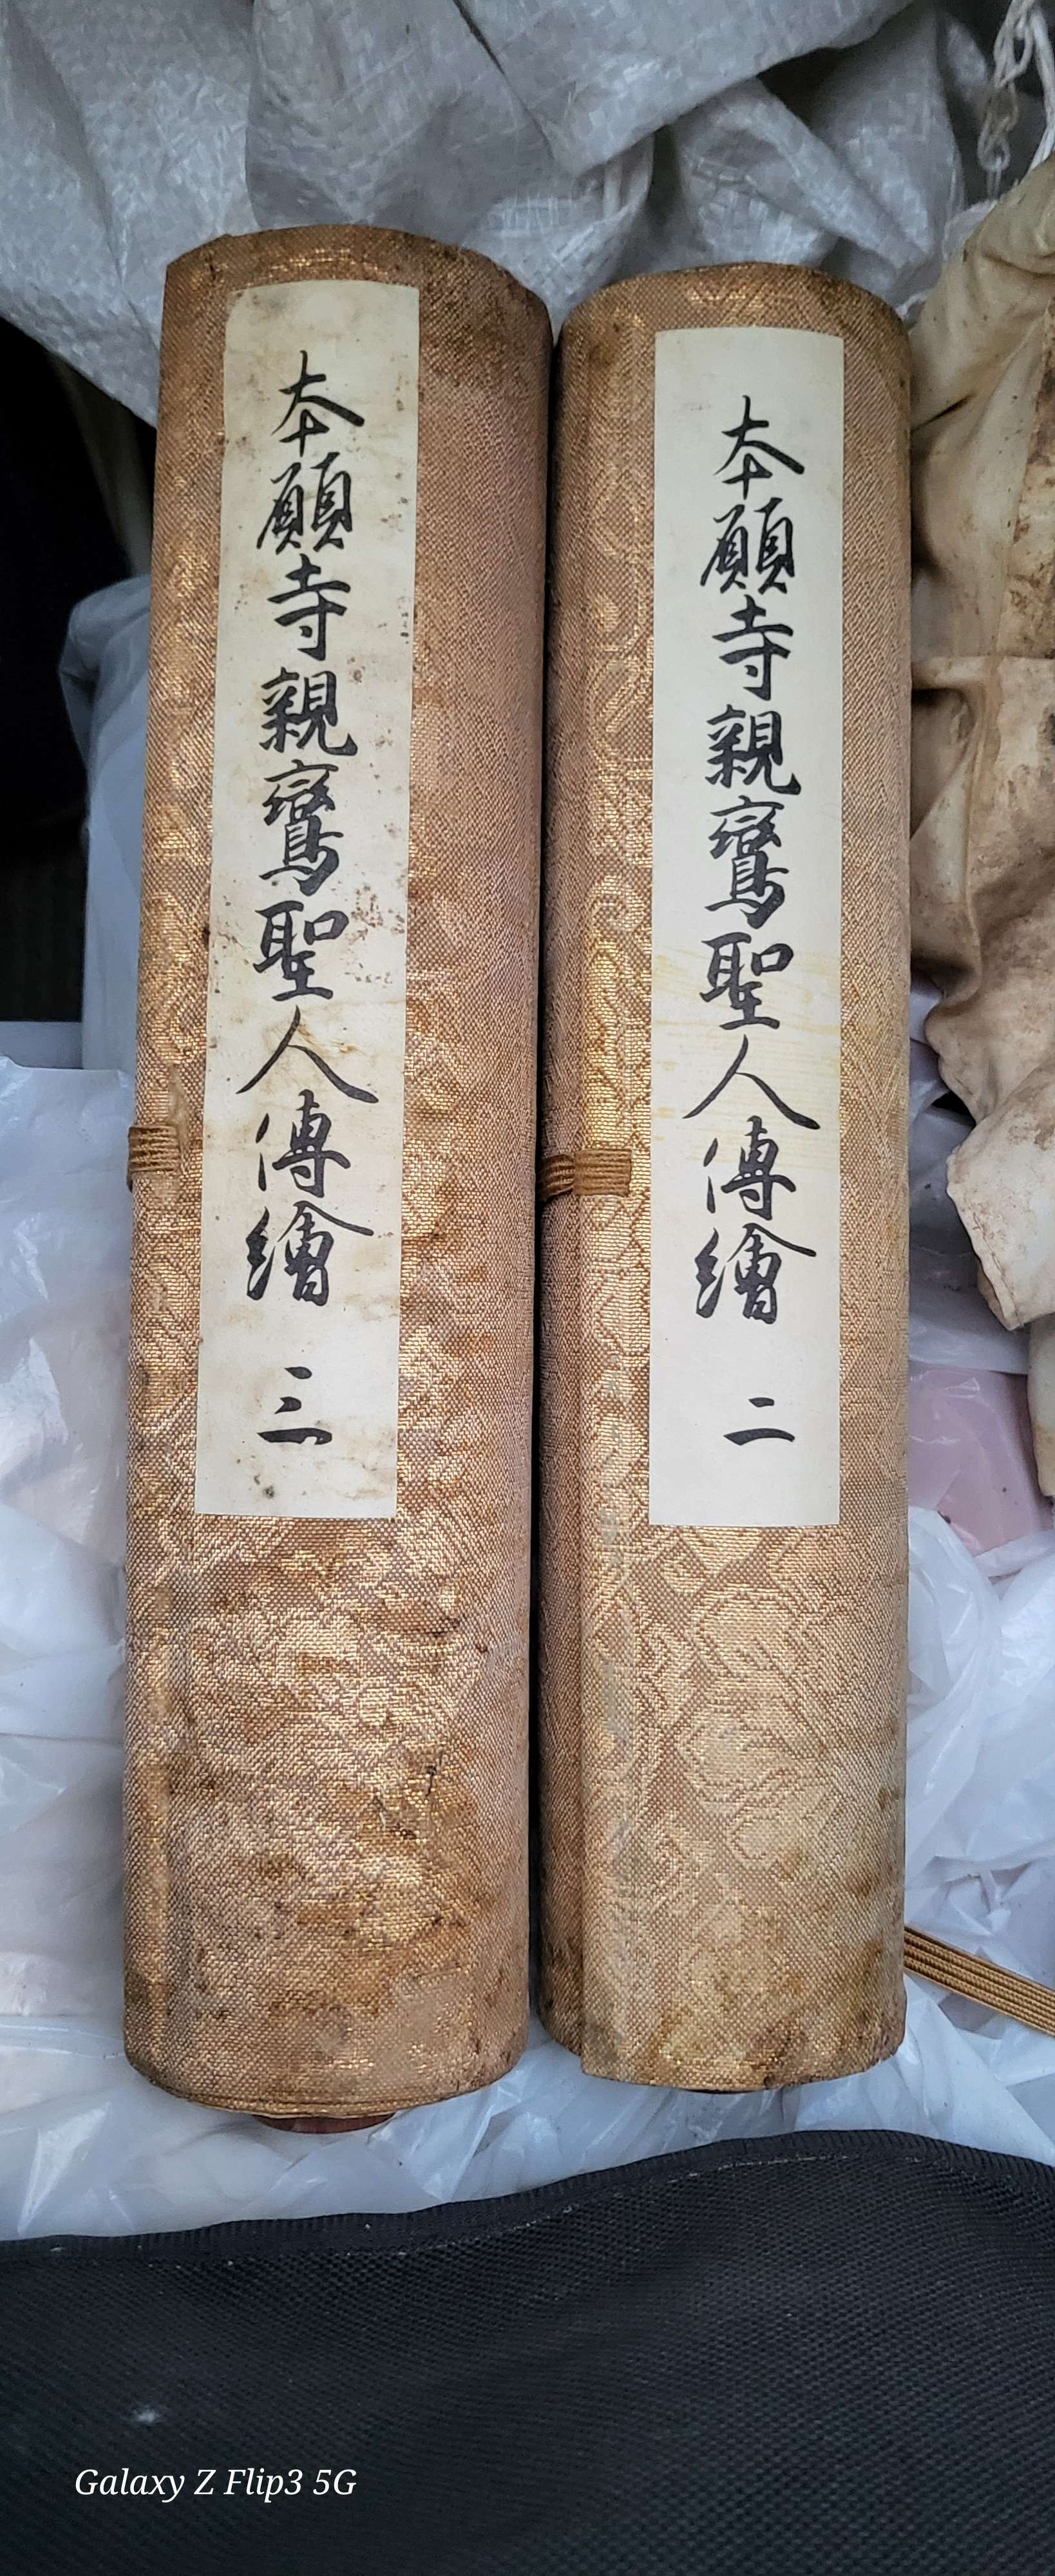 本願寺親鸞聖人傳繪 三
本願寺親鸞聖人傳繪 二
Galaxy Z Flip3 5G